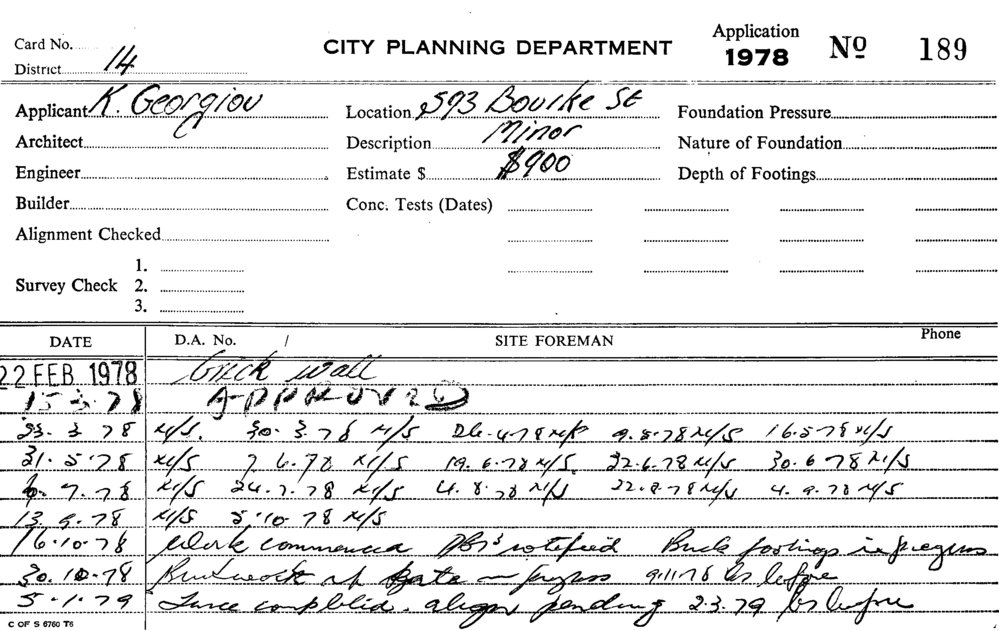 Card No.
District 14
CITY PLANNING DEPARTMENT
Application
1978 Nº 189
Applicant K. Georgiou
Location 593 Bourke St
Foundation Pressure
Architect
Description Minor
Nature of Foundation
Engineer
Estimate $ $900
Depth of Footings
Builder
Conc. Tests (Dates)
Alignment Checked
Survey Check 1.
2.
3.
DATE D.A. No. / SITE FOREMAN Phone
22 FEB 1978 brick wall
15 3 78 APPROVED
23. 3 78 N/S. 30. 3. 78 N/S 26.4.78 N/S 9.5.78 N/S 16.5.78 N/S
31. 5. 78 N/S 7.6.78 N/S 19.6.78 N/S. 22.6.78 N/S 30.6.78 N/S
6. 7. 78 N/S 24.7.78 N/S 4.8.78 N/S 22.8.78 N/S 4.9.78 N/S
13. 9. 78 N/S 5.10.78 N/S
16.10.78 Work commenced notified Brick footings in progress
30.10.78 Brickwork at gate in progress 9.11.78 as before
5.1.79 Fence completed. align pending 2.3.79 as before
C OF S 6760 T6